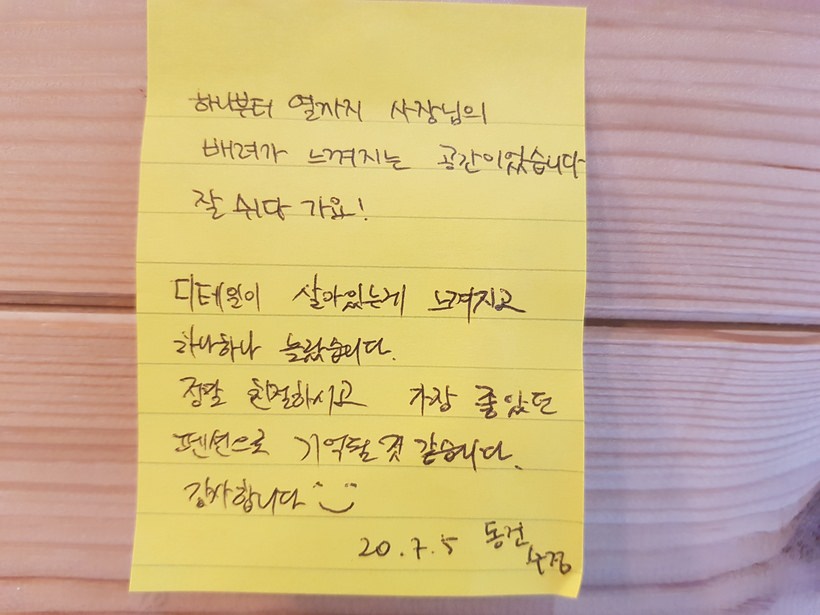 하나부터 열까지 사장님의
배려가 느껴지는 공간이었습니다
잘 쉬당 가요!
디테일이 살아있는게 느껴지고
하나하나 놀랐습니다.
정말 친절하시고 가장 좋았던
펜션으로 기억될 것 같습니다.
감사합니다
20.7.5 동건
수정